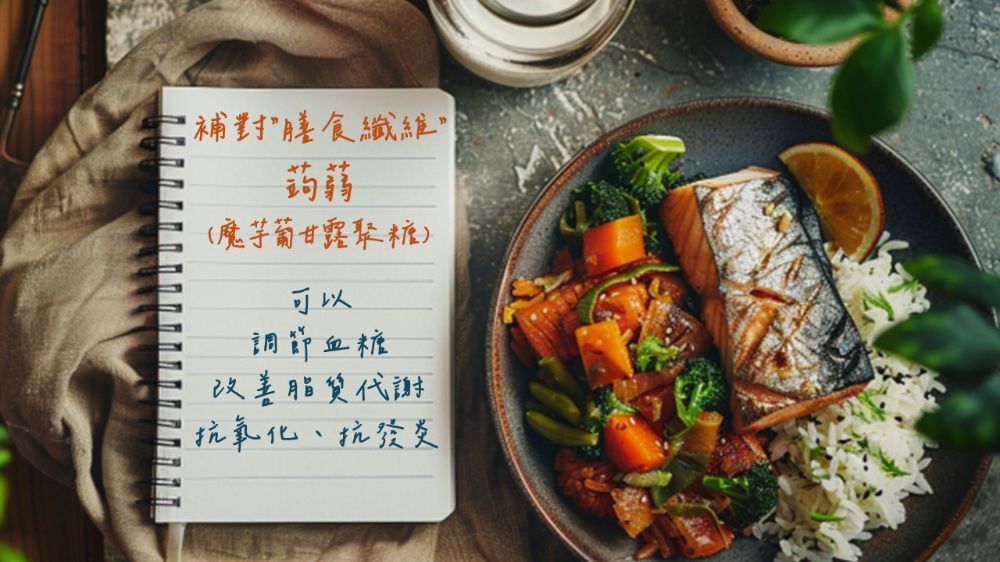 補對"膳食纖維"
蒟蒻
(魔芋葡甘露聚糖)
可以
調節血糖
改善脂質代謝
抗氧化、抗發炎